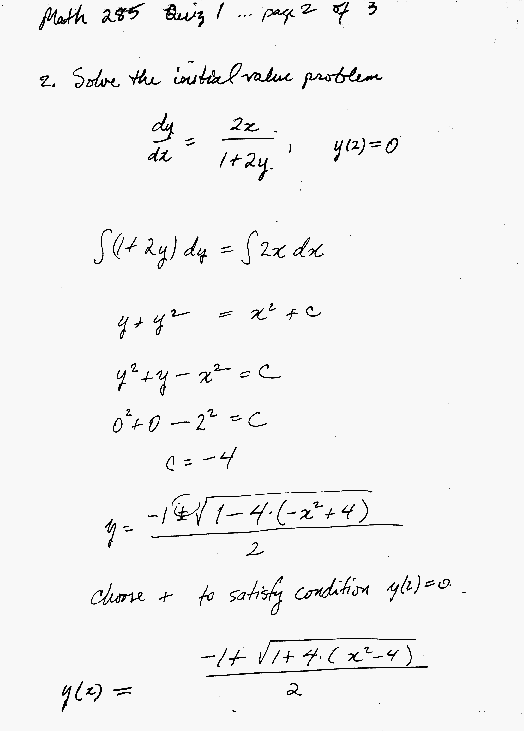 Math 285 Quiz 1 ... page 2 of 3
2. Solve the initial value problem
dy/dx = 2x/(1+2y), y(2)=0
∫(1+2y) dy = ∫2x dx
y+y² = x²+c
y²+y-x²=C
0²+0-2²=C
C=-4
y= (-1±√(1-4·(-x²+4)))/2
choose + to satisfy condition y(2)=0.
y(x) = (-1+√(1+4·(x²-4)))/2